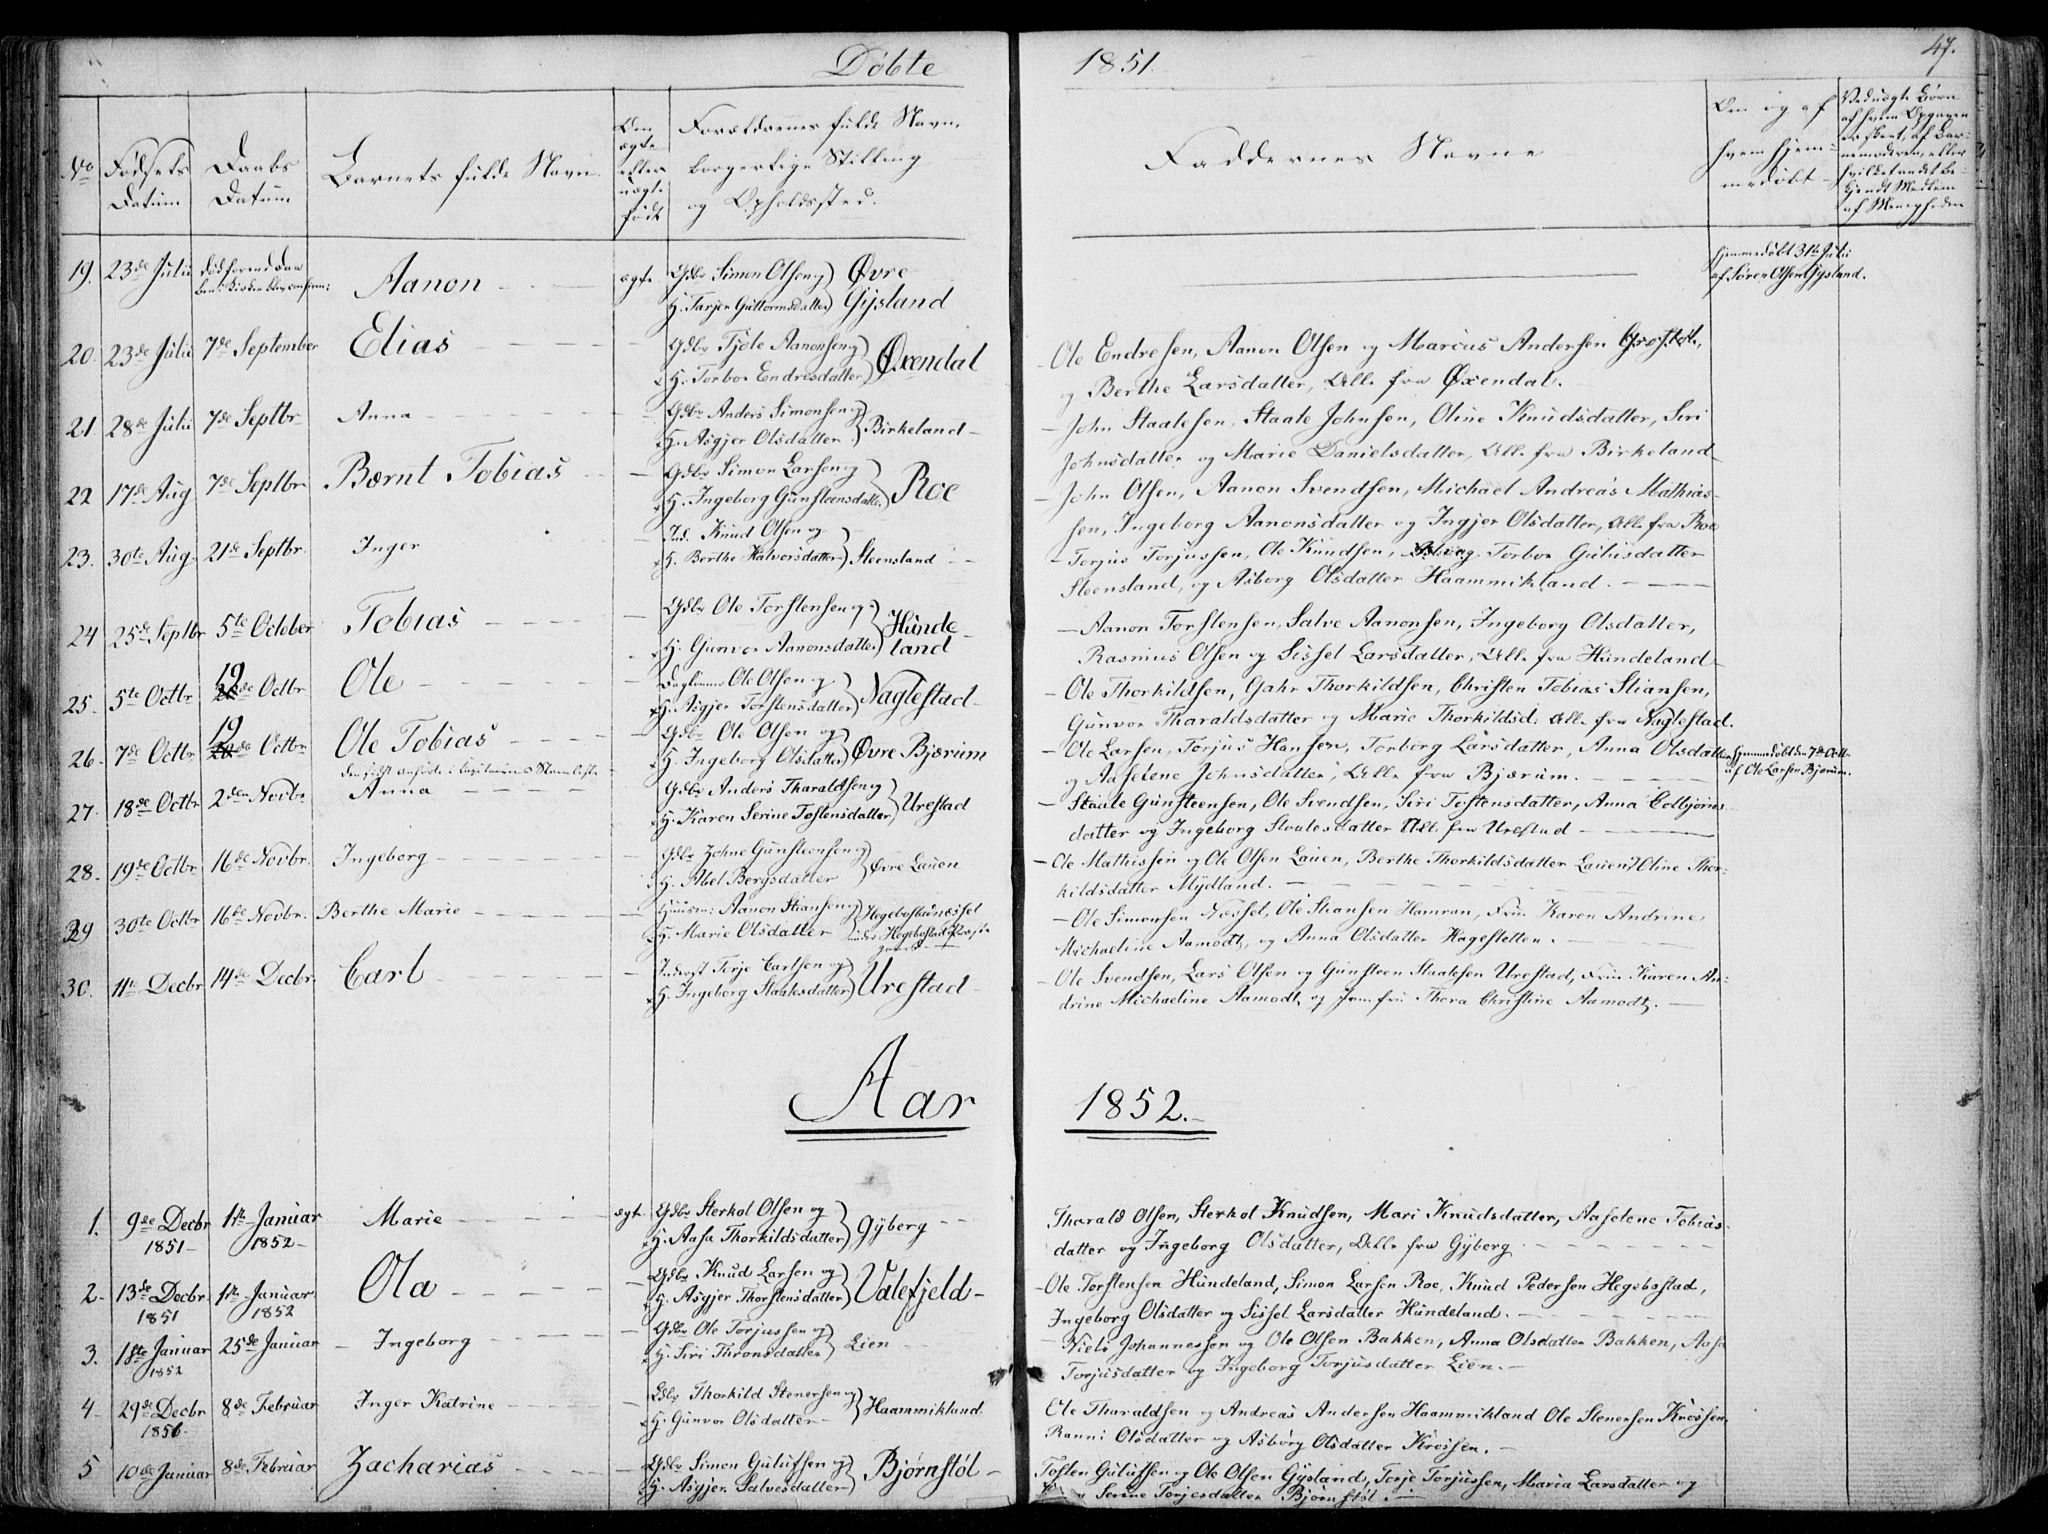 Døbte 1851. 47.
No Fødsels Datum Daabs Datum Barnets fulde Navn Om ægte eller uægte født Forældrenes fulde Navn, borgerlige Stilling og Opholdssted. Faddernes Navne Om og af hvem hjemmedøbt
19. 23de Julii Aanon ægte Gdbr Simon Olsen og Øvre hjemmedøbt 31te Julii
H. Tarjer Guttormsdatter Gysland af Søren Olsen Gysland.
20. 23de Julii 7de September Elias Gdbr Tjøle Aanonsen og Øxendal Ole Endresen, Aanon Olsen og Marcus Andersen
H. Torbor Endresdatter og Berthe Larsdatter, Alle fra Øxendal.
21. 28de Julii 7de Septbr Anna Gdbr Anders Simonsen og Birkeland John Staalesen, Staale Johnsen, Oline Knudsdatter, Siri
H. Asgjer Olsdatter Johnsdatter og Marie Danielsdatter, Alle fra Birkeland
22 17de Aug 7de Septbr Bærnt Tobias Gdbr Simon Larsen og Roe John Olsen, Aanon Svendsen, Michael Andreas Mathias-
H. Ingeborg Gunsteensdatter sen, Ingeborg Aanonsdatter og Ingjer Olsdatter, Alle fra Roe
23. 30te Aug. 21de Septbr. Inger Ind. Knud Olsen og Steensland Torjus Torjussen, Ole Knudsen, Torbor Gulufsdatter
H. Berthe Halvorsdatter Steensland, og Asborg Olsdatter Haammikland.
24 25de Septbr 5te October Tobias Gdbr Ole Torstensen og Hunde Aanon Torstensen, Salve Aanonsen, Ingeborg Olsdatter,
H. Gunvor Aanonsdatter land Rasmus Olsen og Sissel Larsdatter, Alle fra Hundeland
25. 5te Octbr 19de Octbr Ole Daglønner Ole Olsen og Naglestad Ole Thorkildsen, Gahr Thorkildsen, Christen Tobias Stiansen,
H. Asgjer Torstensdatter Gunvor Tharaldsdatter og Marie Thorkildsd: Alle fra Naglestad.
26. 7de Octbr 19de Octbr Ole Tobias Gdbr Ole Olsen og Øvre Bjørum Ole Larsen, Torjus Hansen, Torborg Larsdatter, Anna Olsdatter hjemmedøbt den 7de Octbr
H. Ingeborg Olsdatter og Aaselene Johnsdatter, Alle fra Bjærum. af Ole Larsen Bjørum.
27. 18de Octbr 2den Novbr. Anna Gdbr Anders Tharaldsen og Urestad Staale Gunsteensen, Ole Svendsen, Siri Tostensdatter, Anna Edbjørns-
H. Karen Serine Tostensdatter datter og Ingeborg Staalesdatter Alle fra Urestad
28. 19de Octbr. 16de Novbr. Ingeborg Gdbr Gunsteensen og Øvre Lauen Ole Mathissen og Ole Olsen Lauen, Berthe Thorkildsdatter Lauen, Oline Thor-
H. Abel Bergsdatter kildsdatter Mydland.
29 30te Octbr 16de Novbr. Berthe Marie Huusm: Aanon Stiansen og Ole Simonsen Næsset, Ole Stiansen Hamran, Frue Karen Andrine
H. Marie Olsdatter Michaeline Aamodt, og Anna Olsdatter Hagestetten.
30. 11te Decbr 14de Decbr. Carl Inderst Terje Carlsen og Urestad Ole Svendsen, Lars Olsen og Gunsteen Staalesen Urestad, Frue Karen An-
H. Ingeborg Staalesdatter drine Michaeline Aamodt, og Jomfru Thora Christine Aamodt.
Aar 1852.
1. 9de Decbr 1851 1te Januar 1852 Marie ægte Gdbr Sterkol Olsen og Gyberg Tharald Olsen, Sterkol Knudsen, Mari Knudsdatter, Aaselene Tobias-
H. Aasa Thorkildsdatter datter og Ingeborg Olsdatter, Alle fra Gyberg
2. 13de Decbr. 1851 1te Januar 1852 Ola Gdbr Knud Larsen og Valefjeld Ole Torstensen Hundeland, Simon Larsen Roe, Knud Pedersen Hegebostad,
H. Asgjer Thorstensdatter Ingeborg Olsdatter og Sissel Larsdatter Hundeland.
3. 1ste Januar 1852 25de Januar Ingeborg Gdbr Ole Torjussen og Lien Niels Johannessen og Ole Olsen Bakken, Anna Olsdatter Bakken, Aasa
H. Siri Thronsdatter Torjusdatter og Ingeborg Torjusdatter Lien.
4. 29de Decbr 1851. 8de Februar Inger Katrine Gdbr Thorkild Stenersen og Haammikland Ole Tharaldsen og Andreas Andersen Haammikland Ole Stenersen Krossen,
H. Gunvor Olsdatter Ranni Olsdatter og Asborg Olsdatter Krossen.
5 10de Januar 8de Februar Zacharias Gdbr Simon Gulufsen og Bjørnstøl Tosten Gulufsen og Ole Olsen Gysland, Terje Torjussen, Maria Larsdatter og
H. Asgjer Salvesdatter Serine Torjesdatter Bjørnstøl.